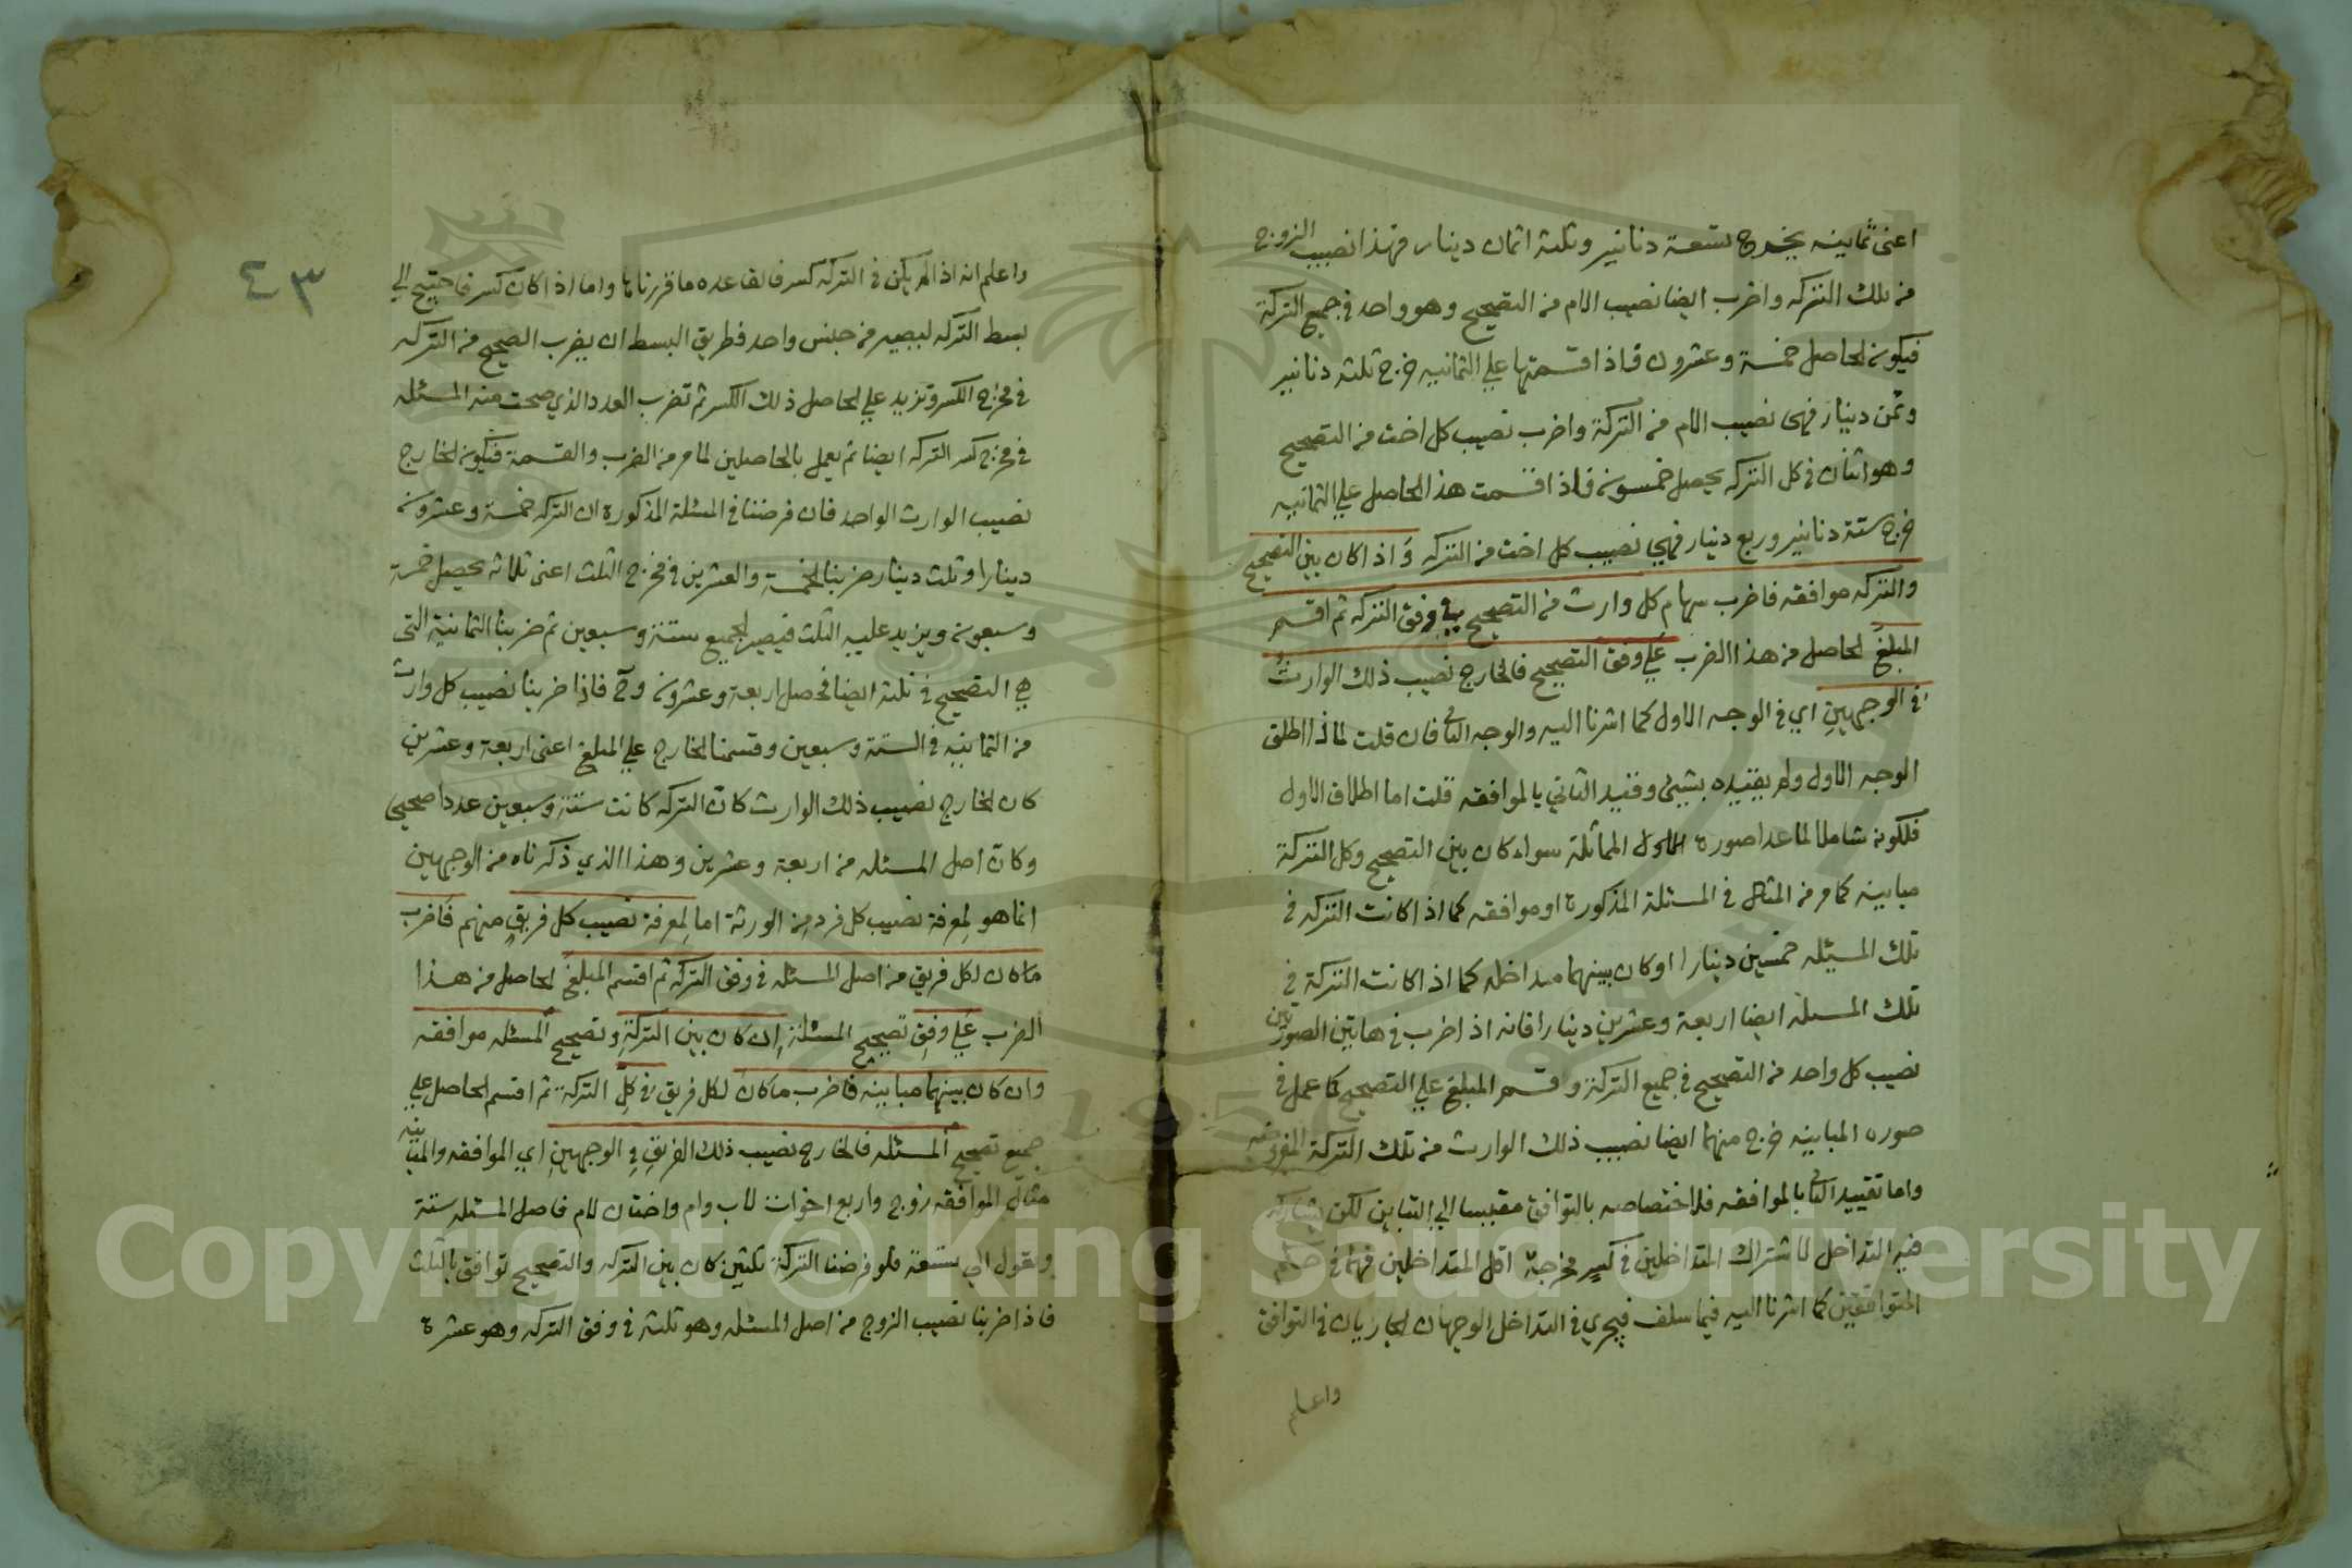 اعنى ثمانيه يخرج تسعة دنانير وثلثة اثمان دينار فهذا نصيب الزوج
من تلك التركه واضرب ايضا نصيب الام من التصحيح وهو واحد في جميع التركة
فيكون الحاصل خمسة وعشرون فاذا اقتسمتها علي الثمانيه خرج ثلثه دنانير
وثمن دينار فهى نصيب الام من التركة واضرب نصيب كل اخت من التصحيح
وهو اثنان في كل التركه يحصل خمسون فاذا اقسمت هذا الحاصل علي الثمانيه
خرج ستة دنانير وربع دينار فهي نصيب كل اخت من التركه واذا كان بين التصحيح
والتركه موافقه فاضرب سهام كل وارث من التصحيح في وفق التركه ثم اقسم
المبلغ الحاصل من هذا الضرب علي وفق التصحيح فالخارج نصيب ذلك الوارث
في الوجهين اي في الوجه الاول كما اشرنا اليه والوجه الثاني فان قلت لماذا اطلق
الوجه الاول ولم يقيده بشيئ وقيد الثاني بالموافقه قلت اما اطلاق الاول
فلكونه شاملا لما عدا صورة المماثلة سواء كان بين التصحيح وكل التركة
مباينه كما مر من المثال في المسئلة المذكورة او موافقه كما اذا كانت التركه في
تلك المسئله خمسين دينارا او كان بينهما مداخله كما اذا كانت التركة في
تلك المسئله ايضا اربعة وعشرين دينارا فانه اذا ضرب في هاتين الصورتين
نصيب كل واحد من التصحيح في جميع التركة وقسم المبلغ علي التصحيح كما عمل في
صوره المباينه خرج منهما ايضا نصيب ذلك الوارث من تلك التركة المفروضه
واما تقييد الثاني بالموافقه فلاختصاصه بالتوافق مقيسا الي التباين لكن يشاركه
فيه التداخل لاشتراك المتداخلين في كسر مخرجه اقل المتداخلين فهما في حكم
المتوافقين كما اشرنا اليه فيما سلف فيجري في التداخل الوجهان الجاريان في التوافق
واعلم
٤٣
واعلم انه اذا لم يكن في التركه كسر فالقاعده ما قررناها واما اذا كان كسر فاحتيج الي
بسط التركه ليصير من جنس واحد فطريق البسط ان يضرب الصحيح من التركه
في مخرج الكسر وتزيد علي الحاصل ذلك الكسر ثم تضرب العدد الذي صحت منه المسئله
في مخرج كسر التركه ايضا ثم يعمل بالحاصلين لما مر من الضرب والقسمة فيكون الخارج
نصيب الوارث الواحد فان فرضنا في المسئلة المذكورة ان التركه خمسة وعشرون
دينارا وثلث دينار ضربنا الخمسة والعشرين في مخرج الثلث اعنى ثلاثه يحصل خمسة
وسبعون ويزيد عليه الثلث فيصير الجميع ستة وسبعين ثم ضربنا الثمانية التى
هي التصحيح في ثلثة ايضا فحصل اربعة وعشرون وح فاذا ضربنا نصيب كل وارث
من الثمانيه في الستة وسبعين وقسمنا الخارج علي المبلغ اعنى اربعة وعشرين
كان الخارج نصيب ذلك الوارث كان التركه كانت ستة وسبعين عددا صحيحى
وكان اصل المسئله من اربعة وعشرين وهذا الذي ذكرناه من الوجهين
انما هو لمعرفة نصيب كل فرد من الورثة اما لمعرفة نصيب كل فريق منهم فاضرب
ما كان لكل فريق من اصل المسئله في وفق التركه ثم اقسم المبلغ الحاصل من هذا
الضرب علي وفق تصحيح المسئلة ان كان بين التركة وتصحيح المسئله موافقه
وان كان بينهما مباينه فاضرب ما كان لكل فريق في كل التركة ثم اقسم الحاصل علي
جميع تصحيح المسئله فالخارج نصيب ذلك الفريق في الوجهين اي الموافقه والمباينه
مثال الموافقه زوج واربع اخوات لاب وام واختان لام فاصل المسئله ستة
وتعول الي تسعة فلو فرضنا التركة ثلثين كان بين التركه والتصحيح توافق بالثلث
فاذا ضربنا نصيب الزوج من اصل المسئله وهو ثلثه في وفق التركه وهو عشرة
Copyright © King Saud University
1957